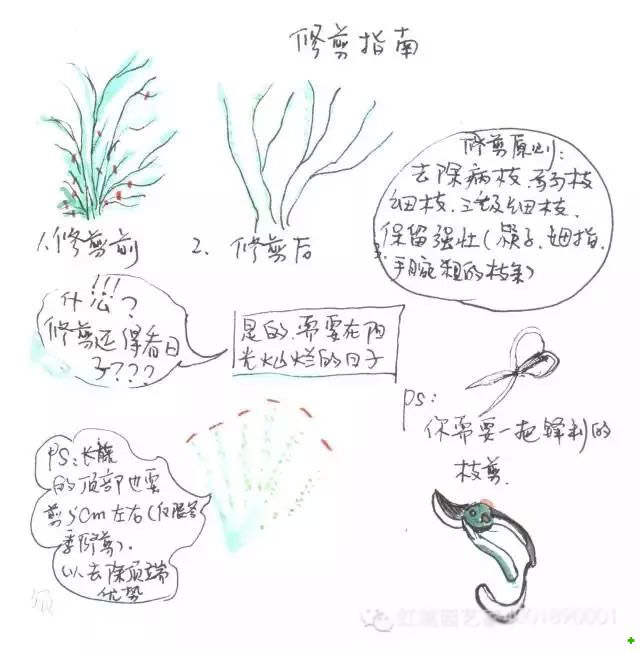 修剪指南
1.修剪前
2. 修剪后
修剪原则:
去除病枝.弱枝
细枝.三级细枝.
保留强壮(筷子.姆指.
手腕粗的枝条)
!!!
什么?
修剪还得看日
子???
是的.需要在阳
光灿烂的日子
ps:
你需要一把锋利的
枝剪.
PS:长藤
的顶部也要
剪5cm左右(仅限冬
季修剪).
以去除顶端
优势
虹越园艺家4001890001